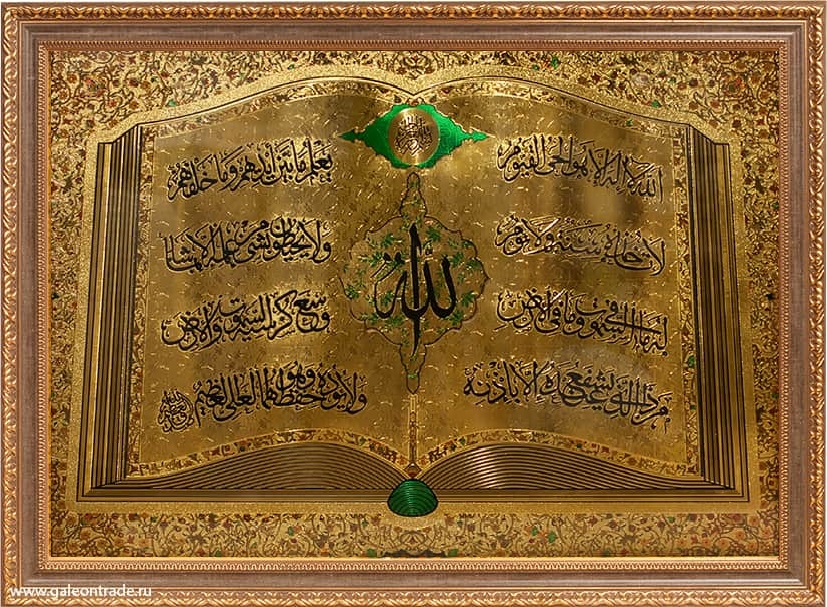 الله لا اله الا هو الحی القیوم
لا تاخذه سنة ولا نوم
له ما فی السموت وما فی الارض
من ذا الذی یشفع عنده الا باذنه
الله
یعلم ما بین ایدیهم وما خلفهم
ولا یحیطون بشیء من علمه الا بما شاء
وسع کرسیه السموت والارض
ولا یؤده حفظهما وهو العلی العظیم
www.galeontrade.ru